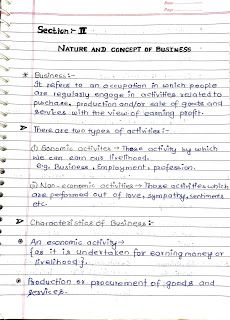 Date
Page
Section :- II
NATURE AND CONCEPT OF BUSINESS
* Business :-
It refers to an occupation in which people
are regularly engage in activities related to
purchase, production and/or sale of goods and
services with the view of earning profit.
> There are two types of activities :-
(i) Economic activites → Those activity by which
we can earn our livelihood.
e.g. Business, employment, profession.
(ii) Non-economic activities → Those activities which
are performed out of love, sympathy, sentiments
etc.
> Characteristics of Business :-
An economic activity →
{as it is undertaken for earning money or
livelihood}.
Production or procurement of goods and
services.